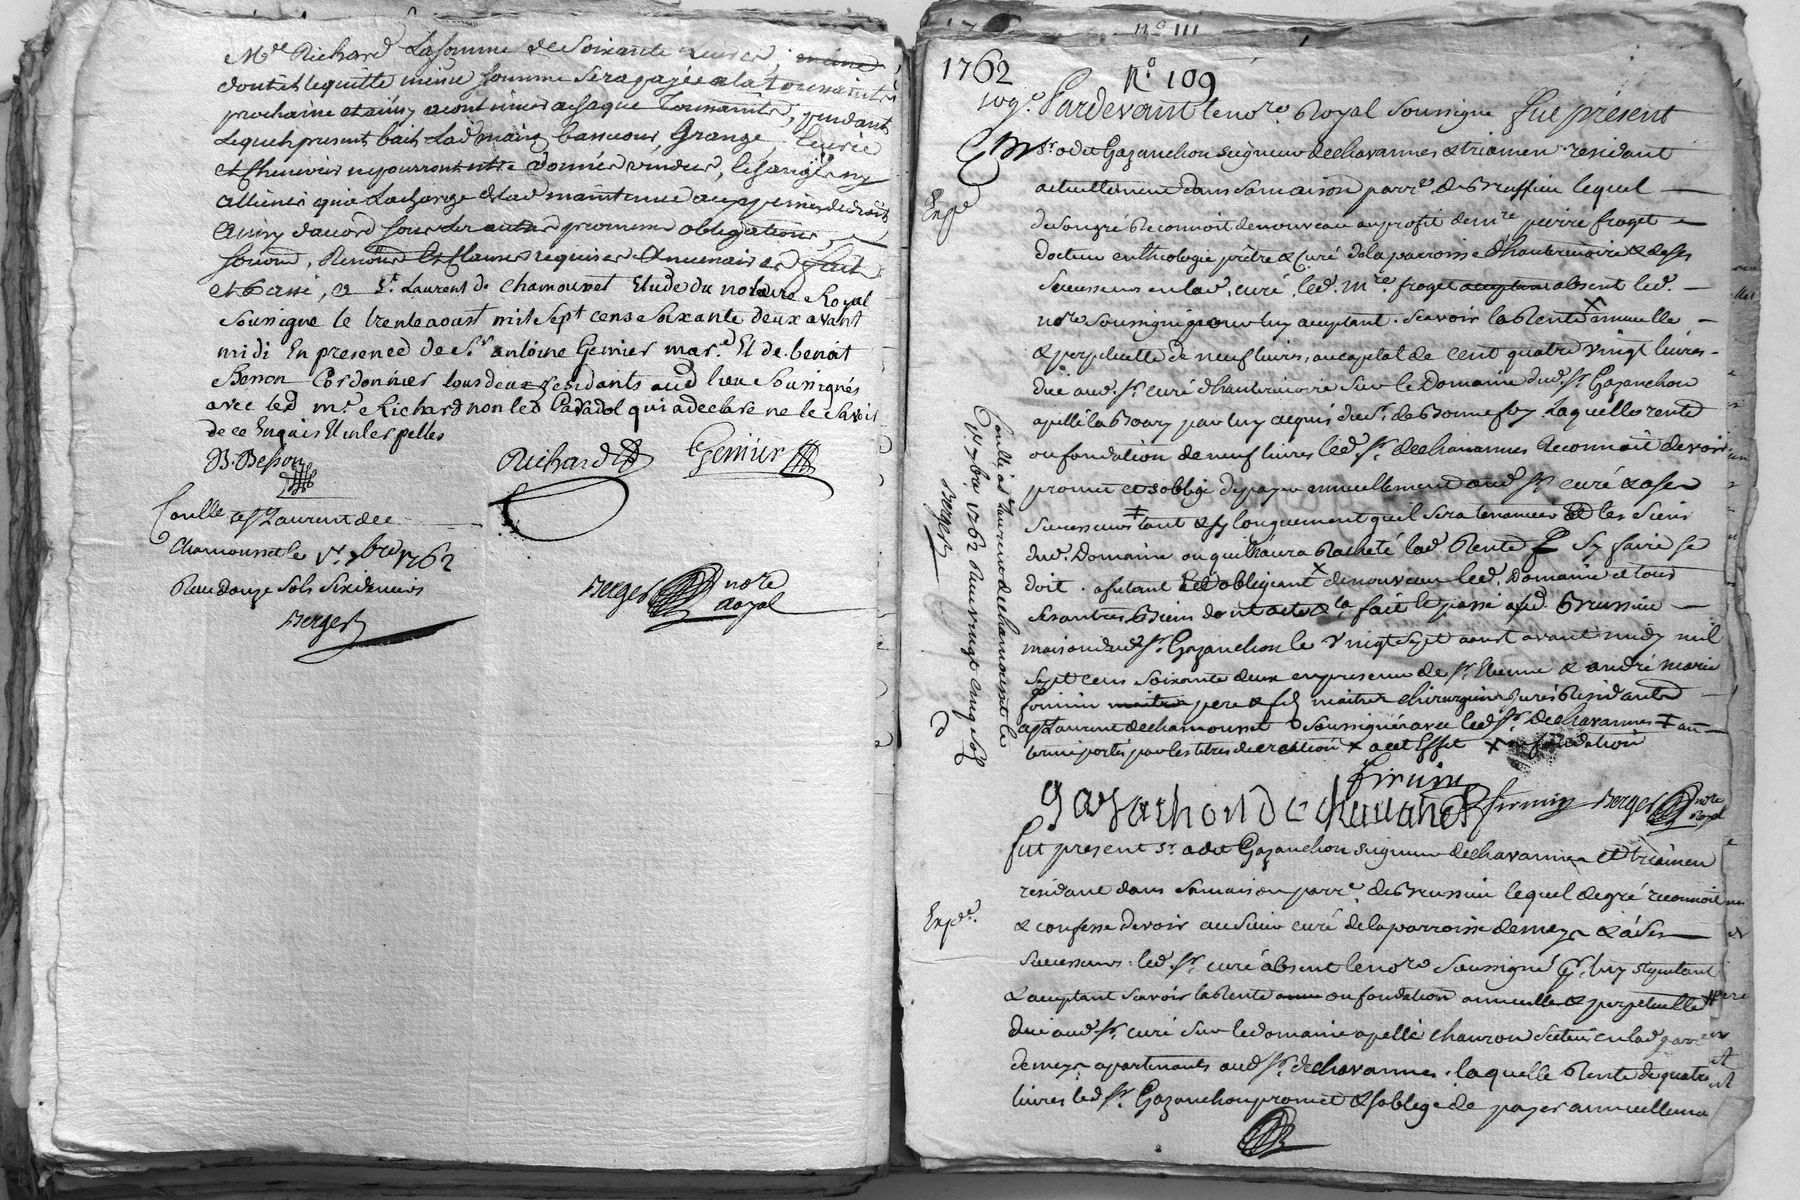 Mre Richard la somme de soixante livres,
dont et lequitte meme somme sera payée a la toussaints
prochaine et ainsy a continuer a chaque toussaints, pendant
lequel present bail lad maison basse cour Grange, Ecurie
et Chenevier ne pourront etre donnés vendus, échangés ny
alliénés qu'a la charge de lad maintenue aux peines de droit
ainsy d'accord sous leur promesse obligations,
soumis, Renons et Clauses requises et necessaires fait
et Passé, a St. Laurent de chamousset Etude du notaire Royal
soussigné le trente aoust mil sept cens soixante deux avant
midi En presence de Sr antoine Genier mar.d Et de benoit
Besson Cordonnier tous deux residants aud lieu soussignés
avec led mr. Richard non led Cadadol qui a declaré ne le savoir
de ce Enquis Et interpellés
B. Besson
Richard
Genier
Conllé a St Laurent de
Chamousset le 1r. 7bre 1762
Reçu douze sols six deniers
Berger
Berger nore
Royal
1762
No 111
No 109
109e Pardevant le nore. Royal soussigné fut présent
Exp.e
Sr. odet Gazanchon seigneur de chavannes & triamen residant
actuellement dans sa maison parre. de Brussieu lequel
de son gré Reconnoit de nouveau au profit de mre pierre froget
docteur en theologie prêtre & Curé de la parroisse d'hauterivoire & de ses
Successeurs en lad. curé, led. mre. froget absent led.
nore soussigné pour luy acceptant. scavoir la Rente annuelle
& perpetuelle de neuf livres, au capital de cent quatre vingt livres
due aud. Sr. curé d'hauterivoire sur le Domaine dud. Sr. Gazanchon
apellé la Boary par luy acquis du Sr. de Bonnefoy. Laquelle rente
ou fondation de neuf livres led. Sr. dechavannes Reconnoit devoir
promet et s'oblige de payer annuellement aud Sr. curé & a ses
successeurs tant & sy longuement qu'il sera tenancier et les siens
dud. Domaine ou qu'il aura Racheté lad. Rente Sy faire se
doit. affectant et obligeant de nouveau led. Domaine et tous
ses autres Biens dont acte fait & passé aud. Brussieu
maison dud Sr. Gazanchon le vingt sept aoust avant midy mil
sept cens soixante deux en presence de Sr. Etienne & andré marie
firmin pere & fils maitres chirurgiens jurés Residants
a St Laurent de chamousset soussignés avec led Sr. de Chavannes au
terme portés par les titres de creation x a cet Effet x ou fondation
Conllé a St Laurent de chamousset le
1r. 7bre 1762 Reçu vingt cinq sols
Berger
firmin
Gazachon de chavanes
firmin
Berger nore
Royal
Exp.ée
fut present Sr. odet Gazanchon seigneur de chavannes et triamen
residant dans sa maison parre. de Brussieu lequel de gré reconnoit
& confesse devoir au sieur curé de la parroisse de meys & a ses
Successeurs. led. Sr. curé absent le nore Soussigné pr. luy stipulant
& acceptant scavoir la Rente ou fondation annuelle & perpetuelle
due aud. Sr. curé sur le domaine apellé chauron scitué en lad. parre
de meys apartenants aud Sr. de chavannes. laquelle Rente de quatre
livres led Sr. Gazanchon promet & s'oblige de payer annuellement